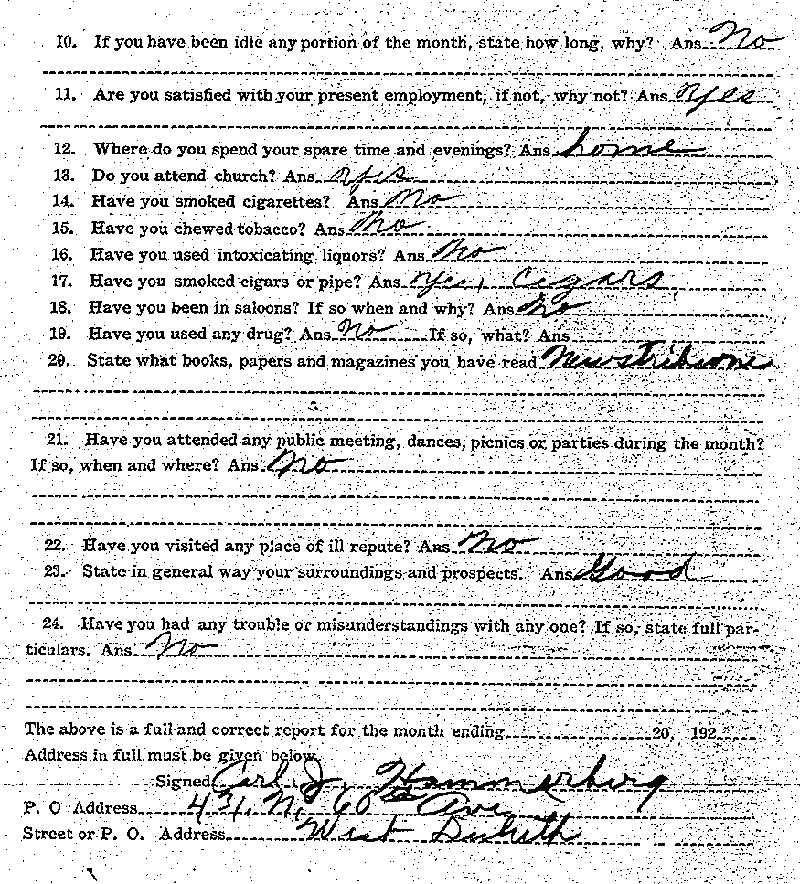 10. If you have been idle any portion of the month, state how long, why? Ans. No
11. Are you satisfied with your present employment, if not, why not? Ans yes
12. Where do you spend your spare time and evenings? Ans home
13. Do you attend church? Ans. yes
14. Have you smoked cigarettes? Ans No
15. Have you chewed tobacco? Ans No
16. Have you used intoxicating liquors? Ans No
17. Have you smoked cigars or pipe? Ans. yes, Cigars
18. Have you been in saloons? If so when and why? Ans no
19. Have you used any drug? Ans No If so, what? Ans
20. State what books, papers and magazines you have read
21. Have you attended any public meeting, dances, picnics or parties during the month?
If so, when and where? Ans. No
22. Have you visited any place of ill repute? Ans No
23. State in general way your surroundings and prospects. Ans Good
24. Have you had any trouble or misunderstandings with any one? If so, state full par-
ticulars. Ans. No
The above is a full and correct report for the month ending 20, 192
Address in full must be given below.
Signed Carl J. Hammerberg
P. O Address 431. N. 60th Ave
Street or P. O. Address West Duluth